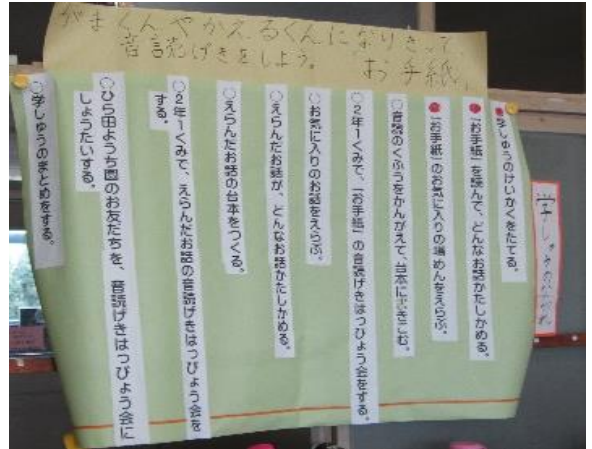 がまくんやかえるくんになりきって
音読げきをしよう。 お手紙
学しゅうのながれ
●学しゅうのけいかくをたてる。
●「お手紙」を読んで、どんなお話かたしかめる。
●「お手紙」のお気に入りの場めんをえらぶ。
○音読のくふうをかんがえて、台本に書きこむ。
○2年1くみで、「お手紙」の音読げきはっぴょう会をする。
○お気に入りのお話をえらぶ。
○えらんだお話が、どんなお話かたしかめる。
○えらんだお話の台本をつくる。
○2年1くみで、えらんだお話の音読げきはっぴょう会を
する。
○ひら田ようち園のお友だちを、音読げきはっぴょう会に
しょうたいする。
○学しゅうのまとめをする。